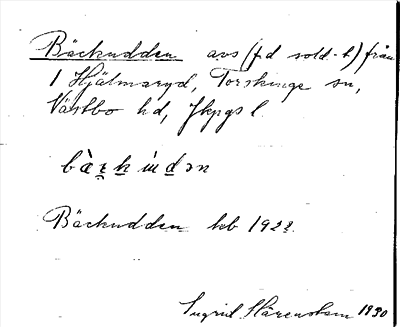 Bäckudden avs (f d sold-t) från
1 Hjälmaryd, Torskinge sn,
Västbo hd, Jkpgs l.
Bäckudden kb 1922.
Ingrid Härenstam 1930